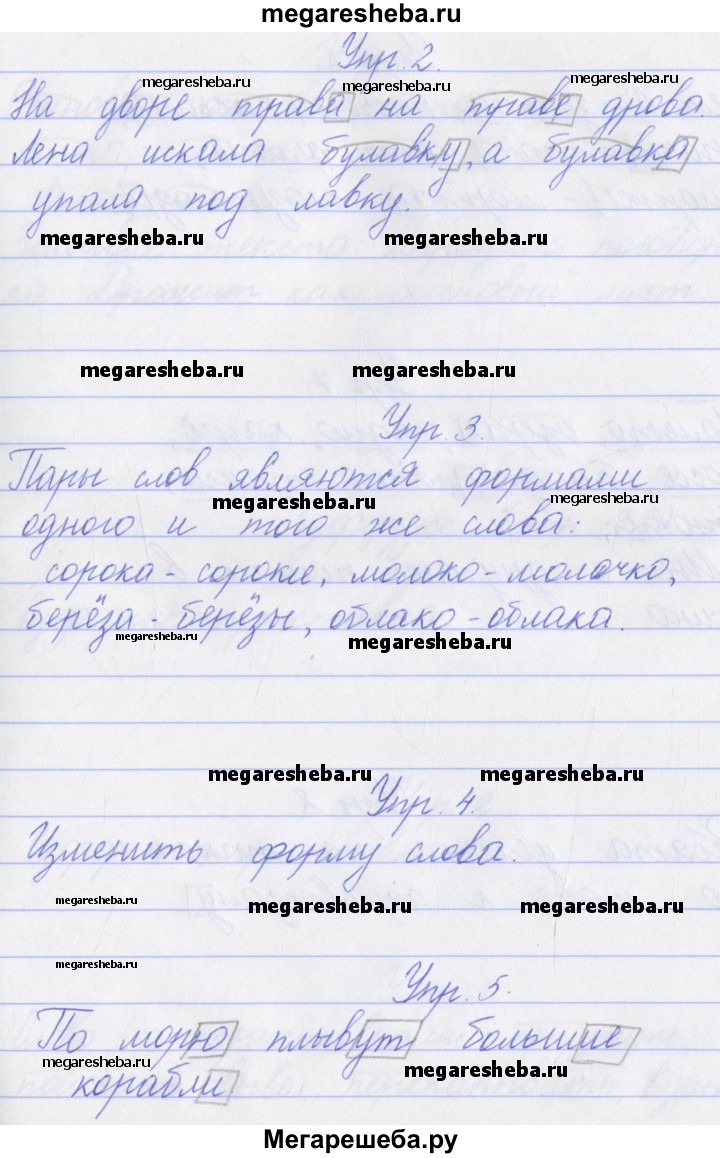 megaresheba.ru
Упр. 2.
megaresheba.ru megaresheba.ru megaresheba.ru
На дворе трава на траве дрова.
Лена искала булавку, а булавка
упала под лавку.
megaresheba.ru megaresheba.ru
megaresheba.ru megaresheba.ru
Упр. 3.
Пары слов являются формами
megaresheba.ru megaresheba.ru
одного и того же слова:
сорока - сороки, молоко - молочко,
берёза - берёзы, облако - облака.
megaresheba.ru megaresheba.ru
megaresheba.ru megaresheba.ru
Упр. 4.
Изменить форму слова.
megaresheba.ru megaresheba.ru megaresheba.ru
megaresheba.ru
Упр. 5.
По морю плывут большие
megaresheba.ru megaresheba.ru
корабли
Мегарешеба.ру